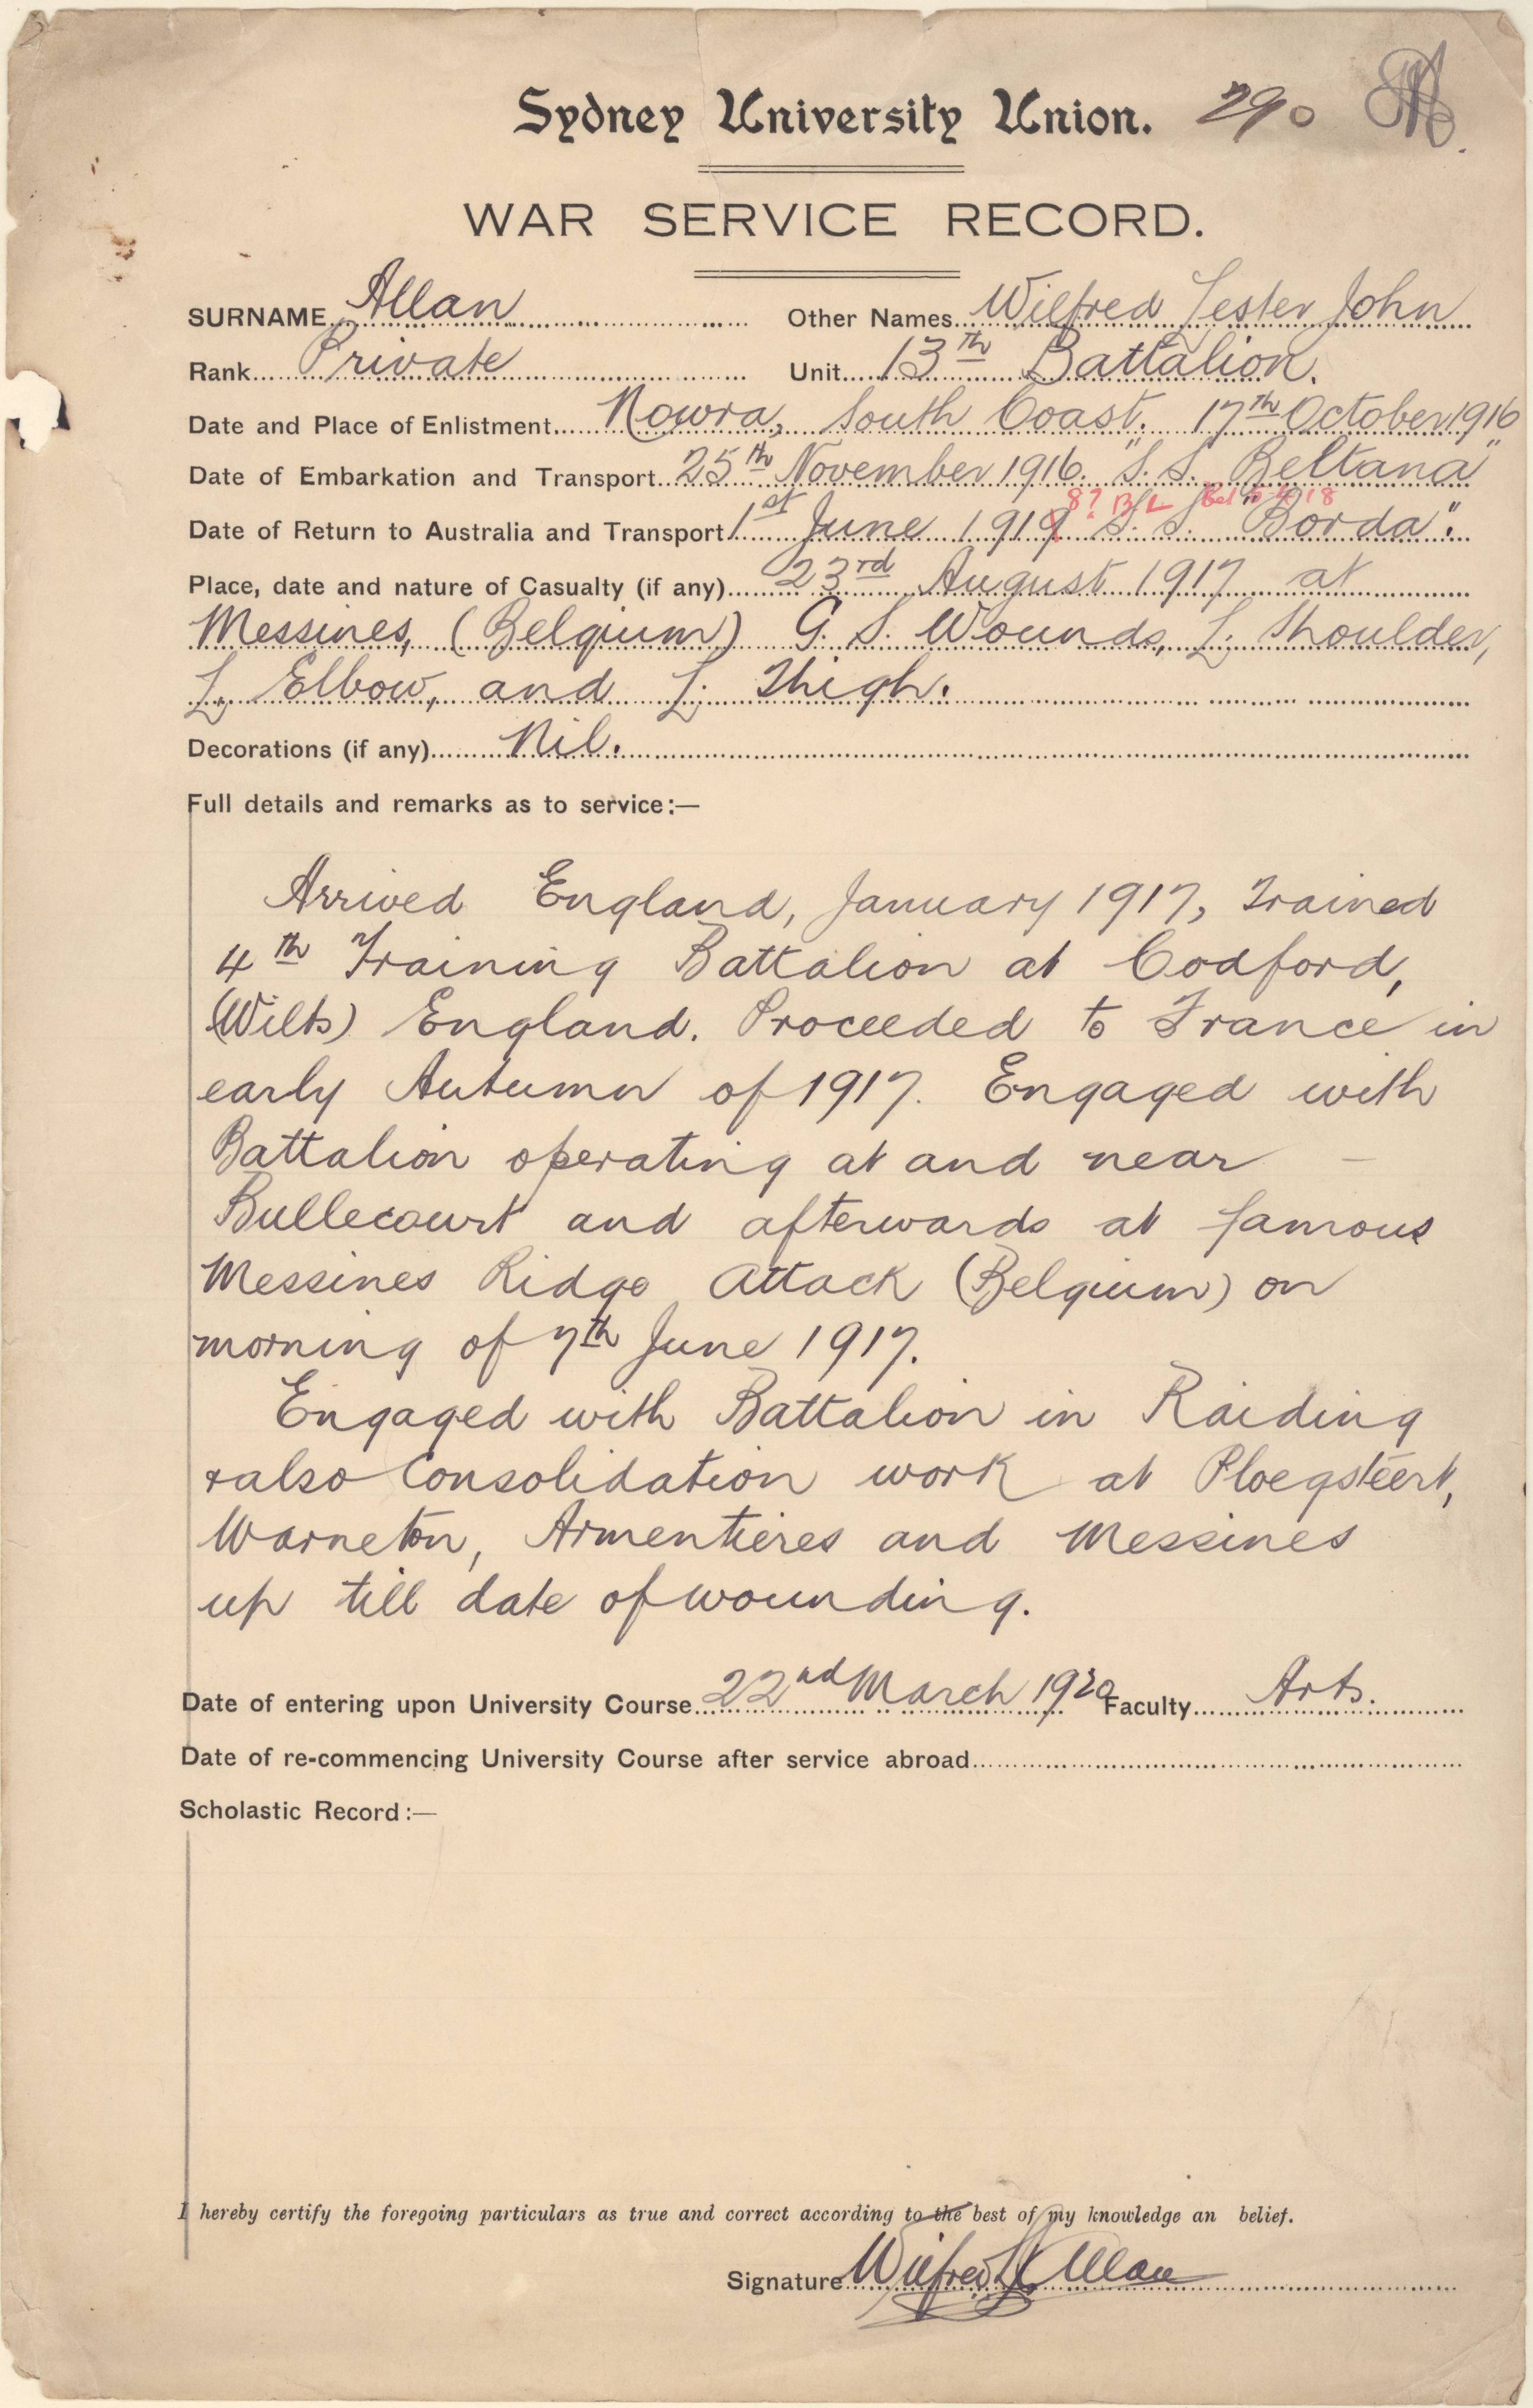 Sydney University Union. 290
WAR SERVICE RECORD.
SURNAME Allan Other Names Wilfred Lester John
Rank Private Unit 13th Battalion.
Date and Place of Enlistment Nowra, South Coast. 17th October 1916
Date of Embarkation and Transport 25th November 1916. "S.S. Beltana"
8? BL 18
Date of Return to Australia and Transport 1st June 1919 S.S. "Borda".
Place, date and nature of Casualty (if any) 23rd August 1917 at
Messines, (Belgium) G.S. Wounds, L. Shoulder,
L. Elbow, and L. Thigh.
Decorations (if any) Nil.
Full details and remarks as to service:—
Arrived England, January 1917, Trained
4th Training Battalion at Codford,
(Wilts) England. Proceeded to France in
early Autumn of 1917. Engaged with
Battalion operating at and near –
Bullecourt and afterwards at famous
Messines Ridge Attack (Belgium) on
morning of 7th June 1917.
Engaged with Battalion in Raiding
& also Consolidation work at Ploegsteert,
Warneton, Armentieres and Messines
up till date of wounding.
Date of entering upon University Course 22nd March 1920 Faculty Arts.
Date of re-commencing University Course after service abroad
Scholastic Record:—
I hereby certify the foregoing particulars as true and correct according to the best of my knowledge an belief.
Signature Wilfred L J Allan